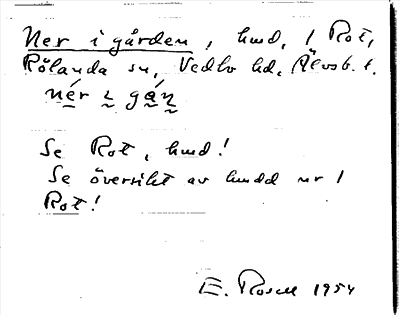 Ner i gården, hmd, 1 Rot,
Rölanda sn, Vedbo hd, Älvsb. l.
nér i gáṇ
Se Rot, hmd!
Se översikt av hmdd nr 1
Rot!
E. Rosell 1954